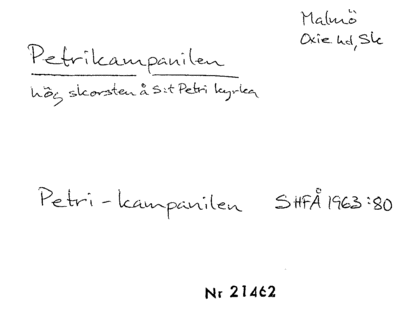 Malmö
Oxie hd, Sk
Petrikampanilen
hög skorsten å S:t Petri kyrka
Petri-kampanilen SHFÅ 1963:80
Nr 21462